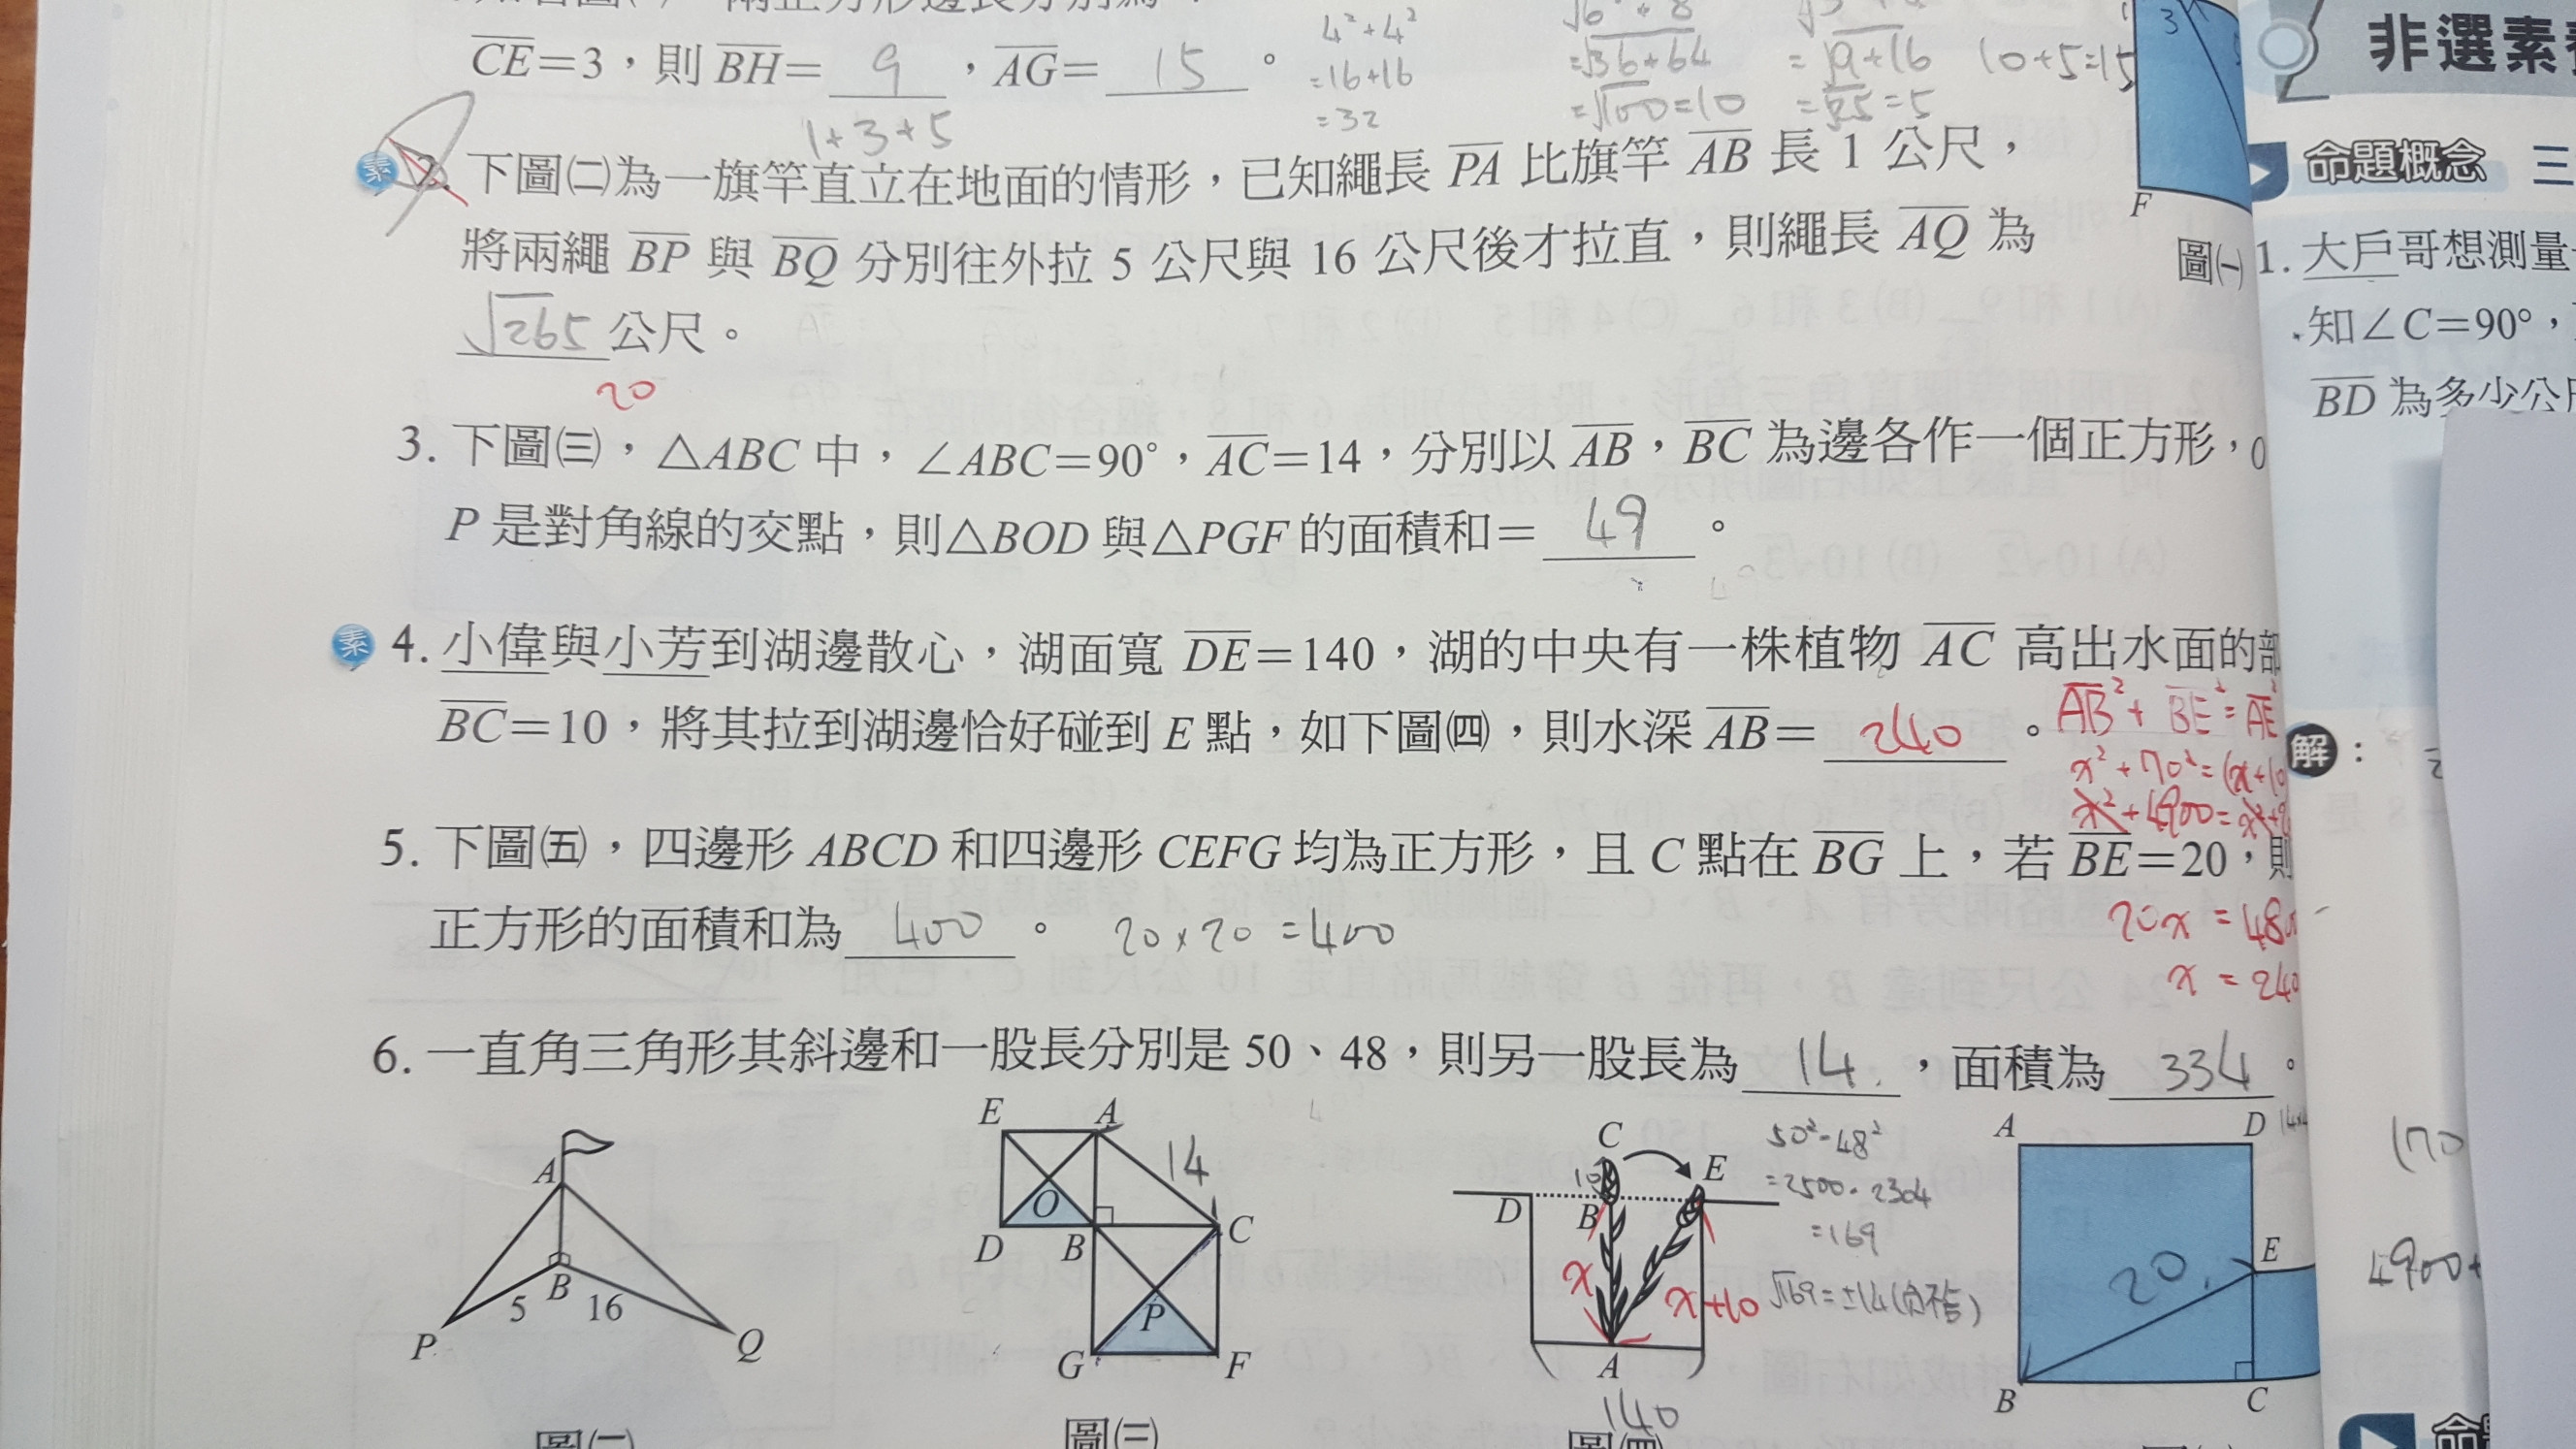 C̅E̅=3，則 B̅H̅= 9 ，A̅G̅= 15 。
1+3+5
4²+4²
=16+16
=32
=√36+64
=√100=10
=√9+16
=√25=5
10+5=15
3
F
圖㈠
素 2. 下圖㈡為一旗竿直立在地面的情形，已知繩長 P̅A̅ 比旗竿 A̅B̅ 長 1 公尺，
將兩繩 B̅P̅ 與 B̅Q̅ 分別往外拉 5 公尺與 16 公尺後才拉直，則繩長 A̅Q̅ 為
√265 公尺。
20
3. 下圖㈢，△ABC 中，∠ABC=90°，A̅C̅=14，分別以 A̅B̅，B̅C̅ 為邊各作一個正方形，O
P 是對角線的交點，則△BOD 與△PGF 的面積和= 49 。
素 4. 小偉與小芳到湖邊散心，湖面寬 D̅E̅=140，湖的中央有一株植物 A̅C̅ 高出水面的部
B̅C̅=10，將其拉到湖邊恰好碰到 E 點，如下圖㈣，則水深 A̅B̅= 240 。
A̅B̅²+B̅E̅²=A̅E̅²
x²+70²=(x+10
x²+4900=x²+2
20x=480
x=240
5. 下圖㈤，四邊形 ABCD 和四邊形 CEFG 均為正方形，且 C 點在 B̅G̅ 上，若 B̅E̅=20，則
正方形的面積和為 400 。 20×20=400
6. 一直角三角形其斜邊和一股長分別是 50、48，則另一股長為 14 ，面積為 334 。
A
B
5
16
P
Q
圖㈡
E
A
14
O
D
B
C
P
G
F
圖㈢
C
10
E
D
B
x
x+10
A
140
圖㈣
50²-48²
=2500-2304
=169
√169=±14(負不合)
A
D
20
E
B
C
非選素
命題概念 三
1. 大戶哥想測量
知∠C=90°，
B̅D̅ 為多少公尺
解：
170
4900+
命